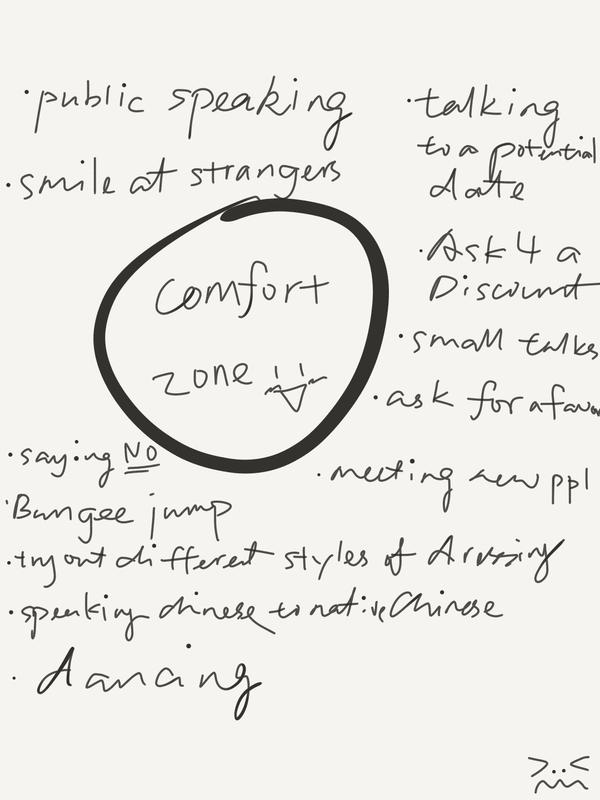 ·public speaking
·smile at strangers
·talking
to a potential
date
·Ask 4 a
Discount
·small talks
·ask for a favor
comfort
zone
·saying NO
·meeting new ppl
·Bungee jump
·try out different styles of dressing
·speaking chinese to native Chinese
·dancing